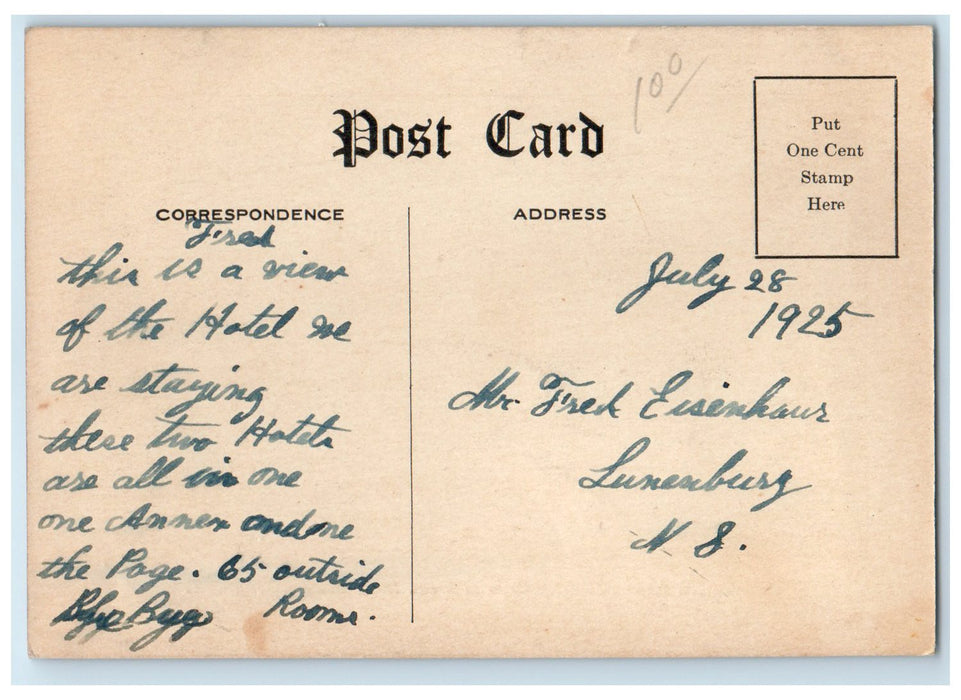 100
Post Card
Put
One Cent
Stamp
Here
CORRESPONDENCE
Fred
this is a view
of the Hotel we
are staying
these two Hotels
are all in one
one Annex and one
the Page. 65 outside
Rooms.
ADDRESS
July 28
1925
Mr Fred Eisenhaur
Lunenburg
N S.